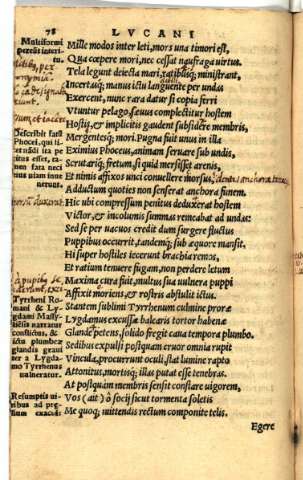 78 LVCANI
Multiformi
pereūt interi-
tu.
Mille modos inter leti, mors una timori est,
Qua cœpere mori, nec cessat naufraga uirtus.
Tela legunt deiecta mari, ratibusq; ministrant,
Incertasq; manus ictu languente per undas
Exercent, nunc rara datur si copia ferri
Vtuntur pelago, sæuus complectitur hostem
Hostis, & implicitis gaudent subsidere membris,
Mergentesq; mori. Pugna fuit unus in illa
Eximius Phoceus, animam seruare sub undis,
Scrutariq; fretum, si quid mersisset arenis,
Et nimis affixos unci conuellere morsus,
Adductum quoties non senserat anchora funem.
Hic ubi compressum penitus deduxerat hostem
Victor, & incolumis summas remeabat ad undas:
Sed se per uacuos credit dum surgere fluctus
Puppibus occurrit, tandemq; sub æquore mansit.
Hi super hostiles iecerunt brachia remos,
Et ratium tenuere fugam, non perdere letum
Maxima cura fuit, multus sua uulnera puppi
Affixit moriens, & rostris abstulit ictus.
Stantem sublimi Tyrrhenum culmine proræ
Lygdamus excussa balearis tortor habenæ
Glande petens, solido fregit caua tempora plumbo.
Sedibus expulsi postquam cruor omnia rupit
Vincula, procurrunt oculi, stat lumine rapto
Attonitus, mortisq; illas putat esse tenebras.
At postquam membris sensit constare uigorem,
Vos (ait) ô socij sicut tormenta soletis
Me quoq; mittendis rectum componite telis.
Egere
Describit fatū
Phocei, qui
Tyrrheni Ro-
mani & Ly
gdami Massi-
liensis narratur
conflictus, &
ictu plumbeæ
glandis inter a Lygda-
mo Tyrrhenus
uulneratur.
Resumptis ui-
ribus ad præ-
lium